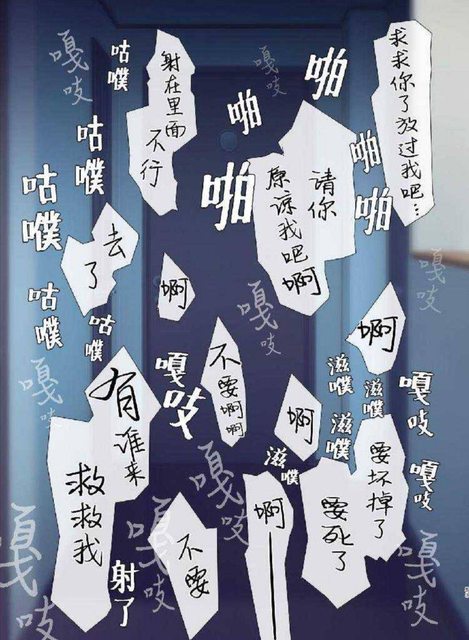 求求你了放过我吧…
啪
啪
啪
啪
啪
请你
原谅我吧啊
射在里面
不行
嘎吱
嘎吱
咕噗
咕噗
咕噗
咕噗
咕噗
去了
啊
嘎吱
嘎吱
啊
不要啊啊
嘎吱
嘎吱
有谁来
救救我
啊
滋噗
滋噗
滋噗
滋噗
嘎吱
嘎吱
要坏掉了
要死了
啊——
不要
射了
嘎吱
嘎吱
嘎吱
嘎吱